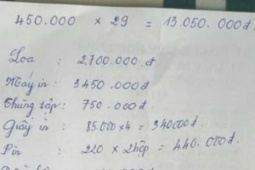 450.000 × 29 = 13.050.000đ
Loa : 2,700.000 đ
Máy in : 3450.000đ
Thùng : 750.000đ
Giấy in : 85.000 x 4 = 340000đ.
Pin : 220 x 2 hộp = 440.000đ.